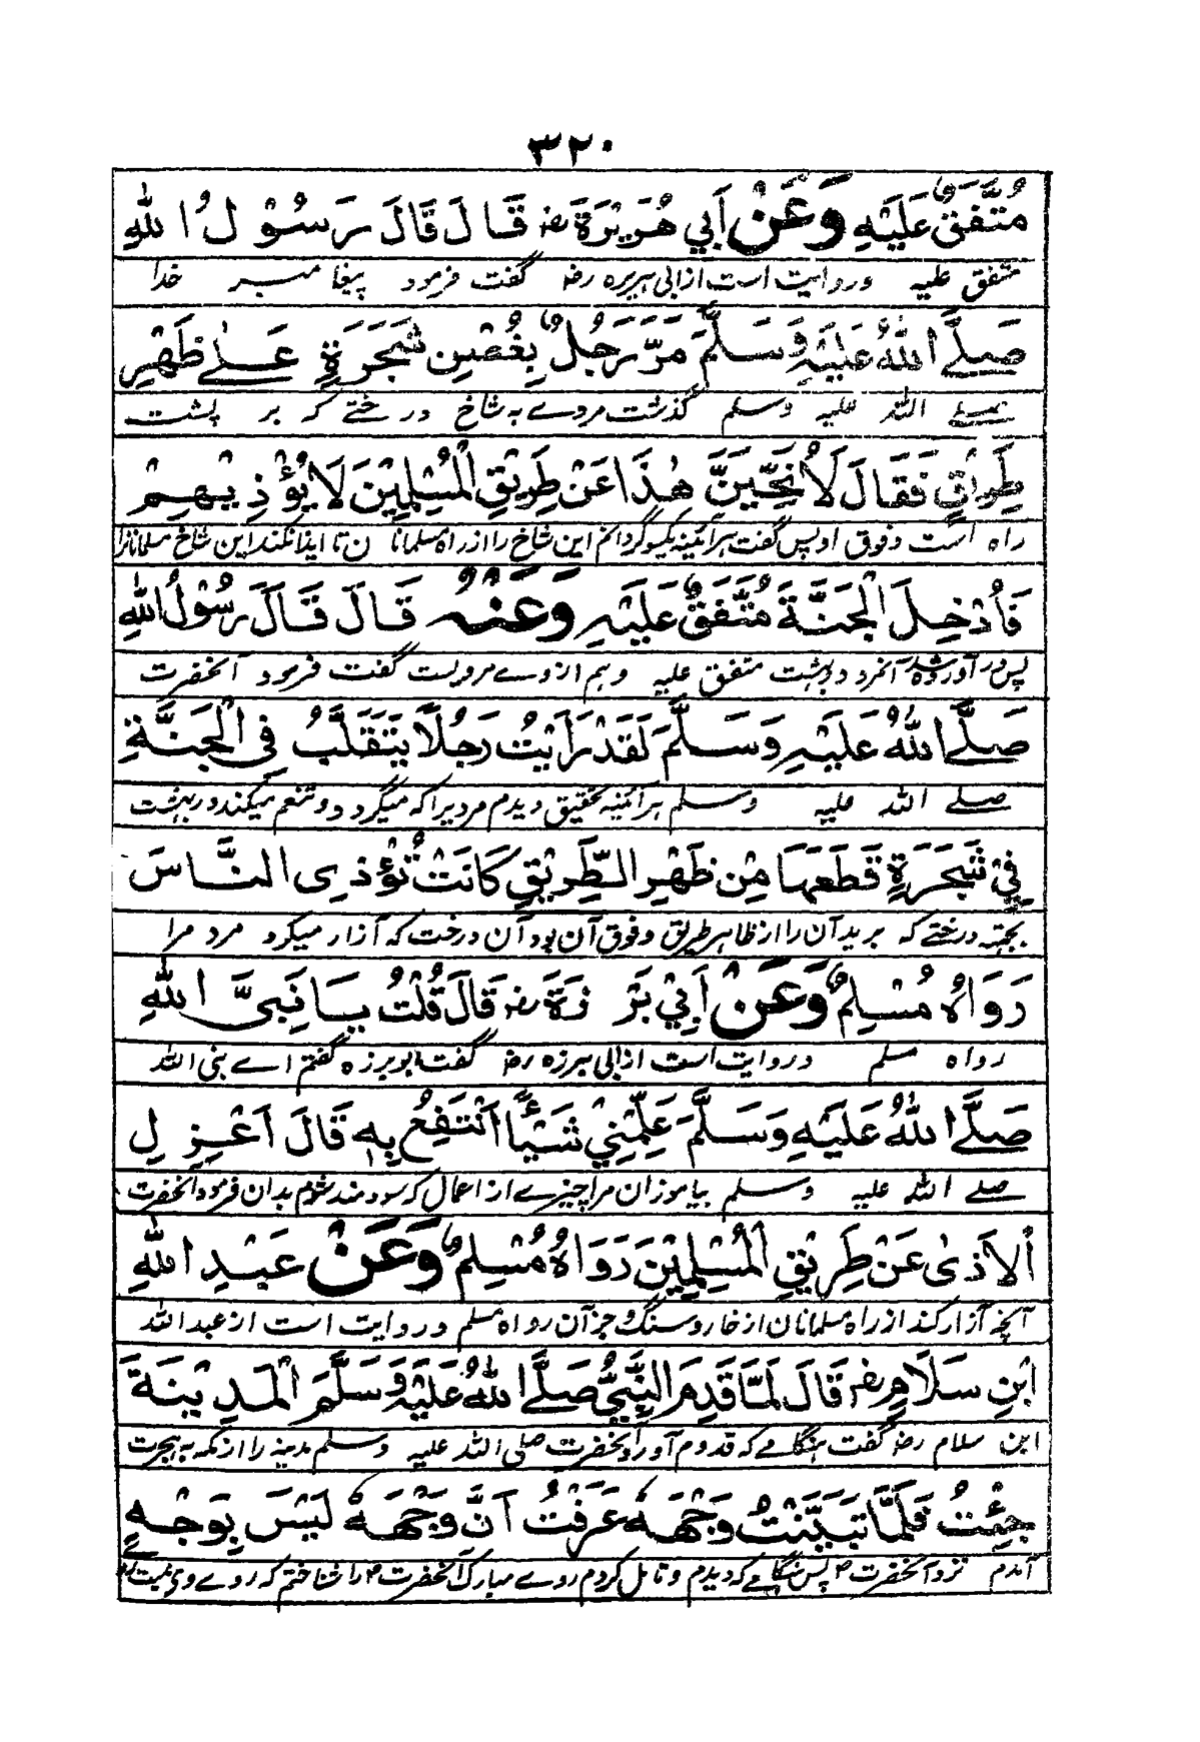 ٣٢٠
مُتَّفَقٌ عَلَيْهِ وَعَنْ أَبِي هُرَيْرَةَ رض قَالَ قَالَ رَسُوْلُ اللهِ
متفق علیه وروایت است از ابی هریره رض گفت فرمود پیغامبر خدا
صَلَّے اللهُ عَلَيْهِ وَسَلَّمَ مَرَّ رَجُلٌ بِغُصْنِ شَجَرَةٍ عَلٰے ظَهْرِ
صلے الله علیه وسلم گذشت مردے به شاخ درختے که بر پشت
طَرِيْقٍ فَقَالَ لَأُنَحِّيَنَّ هٰذَا عَنْ طَرِيْقِ الْمُسْلِمِيْنَ لَا يُؤْذِيْهِمْ
راه است و فوق او پس گفت هرآئینه یکسو گردانم این شاخ را از راه مسلمانان تا ایذا نکند این شاخ مسلمانانرا
فَأُدْخِلَ الْجَنَّةَ مُتَّفَقٌ عَلَيْهِ وَعَنْهُ قَالَ قَالَ رَسُوْلُ اللهِ
پس در آورده شد آنمرد در بهشت متفق علیه وهم از وے مرویست گفت فرمود آنحضرت
صَلَّے اللهُ عَلَيْهِ وَسَلَّمَ لَقَدْ رَأَيْتُ رَجُلًا يَتَقَلَّبُ فِي الْجَنَّةِ
صلے الله علیه وسلم هرآئینه بتحقیق دیدم مردیرا که میگردد و تنعم میکند در بهشت
فِيْ شَجَرَةٍ قَطَعَهَا مِنْ ظَهْرِ الطَّرِيْقِ كَانَتْ تُؤْذِي النَّاسَ
بجهته درختے که برید آن را از ظاهر طریق و فوق آن بود آن درخت که آزار میکرد مردمرا
رَوَاهُ مُسْلِمٌ وَعَنْ أَبِيْ بَرْزَةَ رض قَالَ قُلْتُ يَا نَبِيَّ اللهِ
رواه مسلم وروایت است از ابی برزه رض گفت ابو برزه گفتم اے نبی الله
صَلَّے اللهُ عَلَيْهِ وَسَلَّمَ عَلِّمْنِيْ شَيْئًا أَنْتَفِعُ بِهٖ قَالَ اَعْزِلِ
صلے الله علیه وسلم بیاموزان مرا چیزے از اعمال که سودمند شوم بدان فرمود آنحضرت
الْاَذٰى عَنْ طَرِيْقِ الْمُسْلِمِيْنَ رَوَاهُ مُسْلِمٌ وَعَنْ عَبْدِ اللهِ
آنچه آزار کند از راه مسلمانان از خار و سنگ و جز آن رواه مسلم وروایت است از عبد الله
ابْنِ سَلَامٍ رض قَالَ لَمَّا قَدِمَ النَّبِيُّ صَلَّے اللهُ عَلَيْهِ وَسَلَّمَ الْمَدِيْنَةَ
ابن سلام رض گفت هنگامے که قدوم آورد آنحضرت صلی الله علیه وسلم مدینه را از مکه به هجرت
جِئْتُ فَلَمَّا تَبَيَّنْتُ وَجْهَهٗ عَرَفْتُ اَنَّ وَجْهَهٗ لَيْسَ بِوَجْهِ
آمدم نزد آنحضرت ص پس هنگامے که دیدم و تامل کردم روے مبارک آنحضرت ص را شناختم که روے وی نیست